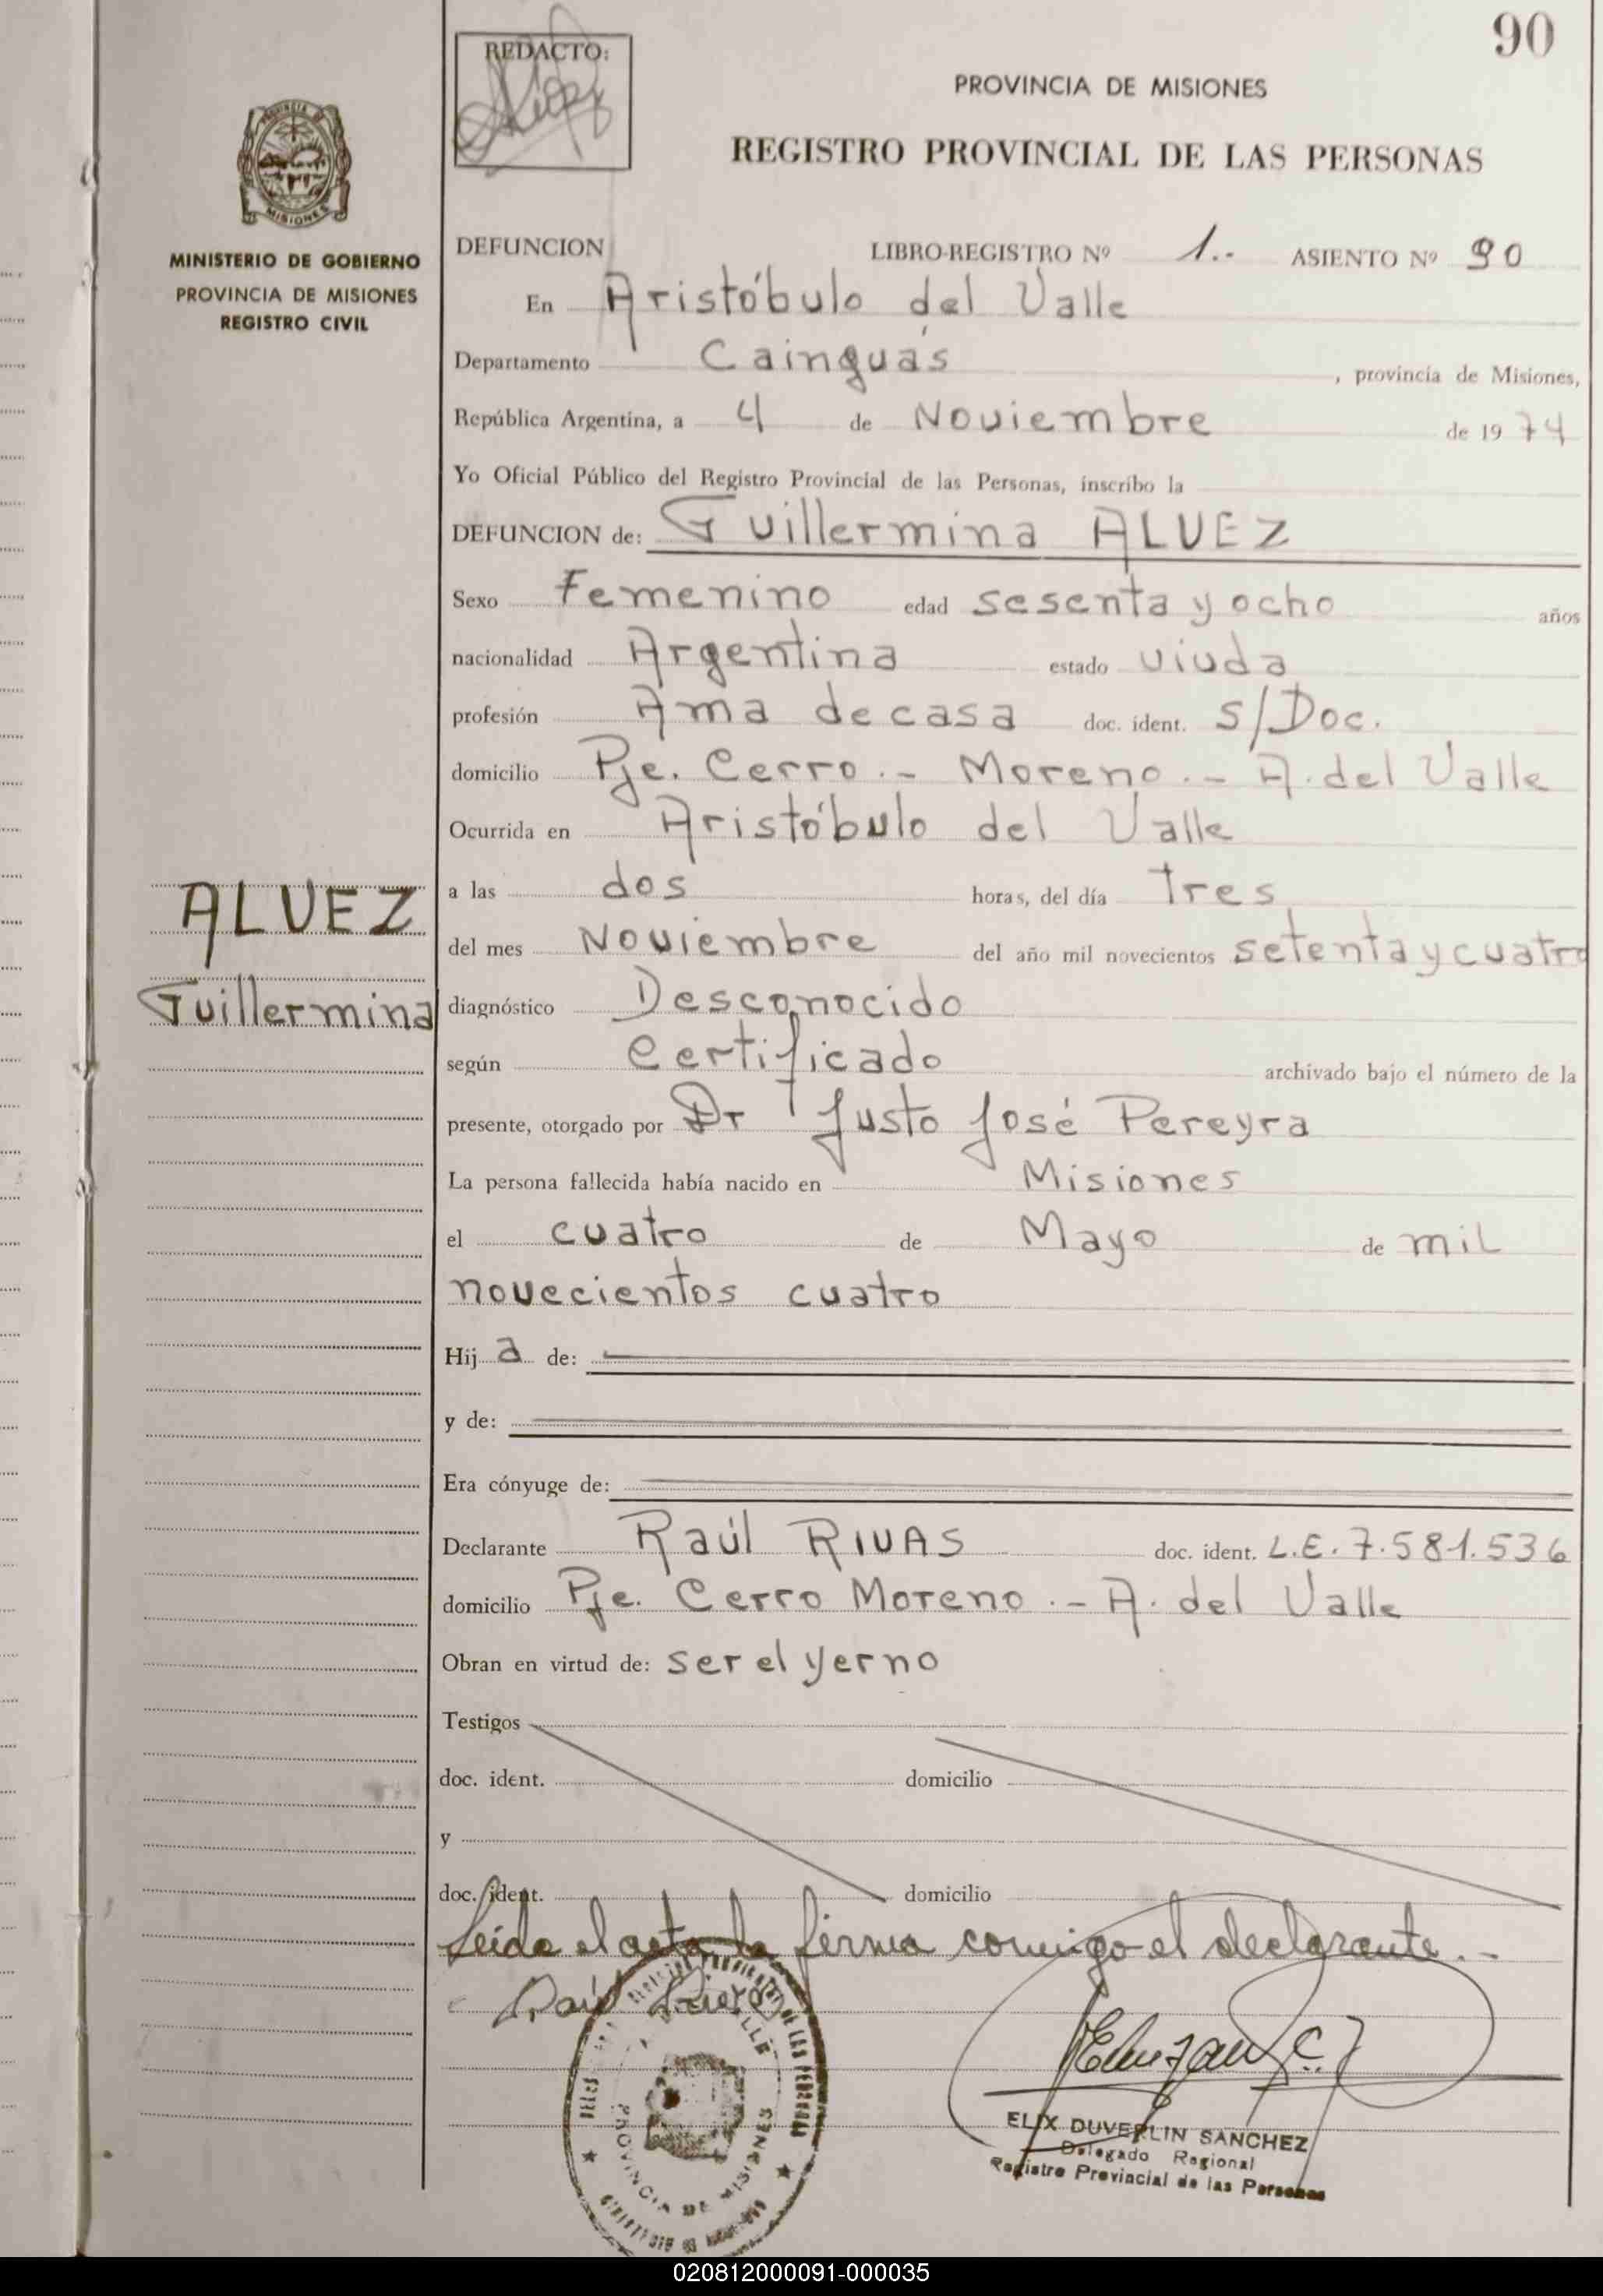 90
REDACTO:
PROVINCIA DE MISIONES
REGISTRO PROVINCIAL DE LAS PERSONAS
MISIONES
MINISTERIO DE GOBIERNO
PROVINCIA DE MISIONES
REGISTRO CIVIL
DEFUNCION LIBRO-REGISTRO Nº 1.- ASIENTO Nº 90
En Aristóbulo del Valle
Departamento Cainguás, provincia de Misiones,
República Argentina, a 4 de Noviembre de 1974
Yo Oficial Público del Registro Provincial de las Personas, inscribo la
DEFUNCION de: Guillermina ALVEZ
Sexo Femenino edad sesenta y ocho años
nacionalidad Argentina estado viuda
profesión Ama de casa doc. ident. S/Doc.
domicilio Pje. Cerro.- Moreno.- A. del Valle
Ocurrida en Aristóbulo del Valle
a las dos horas, del día Tres
del mes Noviembre del año mil novecientos setenta y cuatro
ALVEZ
Guillermina
diagnóstico Desconocido
según Certificado archivado bajo el número de la
presente, otorgado por Dr Justo José Pereyra
La persona fallecida había nacido en Misiones
el cuatro de Mayo de mil
novecientos cuatro
Hija de:
y de:
Era cónyuge de:
Declarante Raúl RIVAS doc. ident. L.E. 7.581.536
domicilio Pje. Cerro Moreno.- A. del Valle
Obran en virtud de: ser el yerno
Testigos
doc. ident. domicilio
y
doc. ident. domicilio
Leída el acta la firma conmigo el declarante.-
Raúl
PROVINCIA DE MISIONES
ELIX DUVERLIN SANCHEZ
Delegado Regional
Registro Provincial de las Personas
020812000091-000035